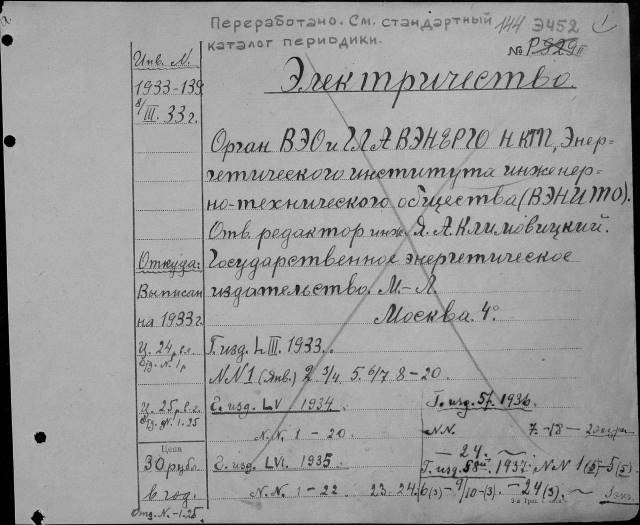 Переработано. См. стандартный 144 Э452
каталог периодики.
№ Р 929 II
Инв. N.
1933-139
8/III. 33 г.
Электричество.
Орган ВЭО и ГЛАВЭНЕРГО НКТП, Энер-
гетического института инженер-
но-технического общества (ВЭНИТО).
Отв. редактор инж. Я. А. Климовицкий.
Откуда:
Выписан
на 1933 г.
Государственное энергетическое
издательство. М.-Л.
Москва. 4°
Ц. 24 р.
Отд. N. 1 р
Г. изд. LIII. 1933.
NN 1 (Янв.) 2 3/4 5. 6/7 8-20.
Ц. 25 р. в г.
Отд. N. 1.25
Г. изд. LV 1934.
N.N. 1-20.
Г. изд. 57. 1936.
NN. 7. -18-
-24.
Цена
30 рубл.
в год.
Отд. N. -1.25.
Г. изд. LVI. 1935.
N.N. 1-22 23. 24.
Г. изд. 58й. 1937. NN 1(5)-5(5)
6(3)-9/10-(3). -24(3).